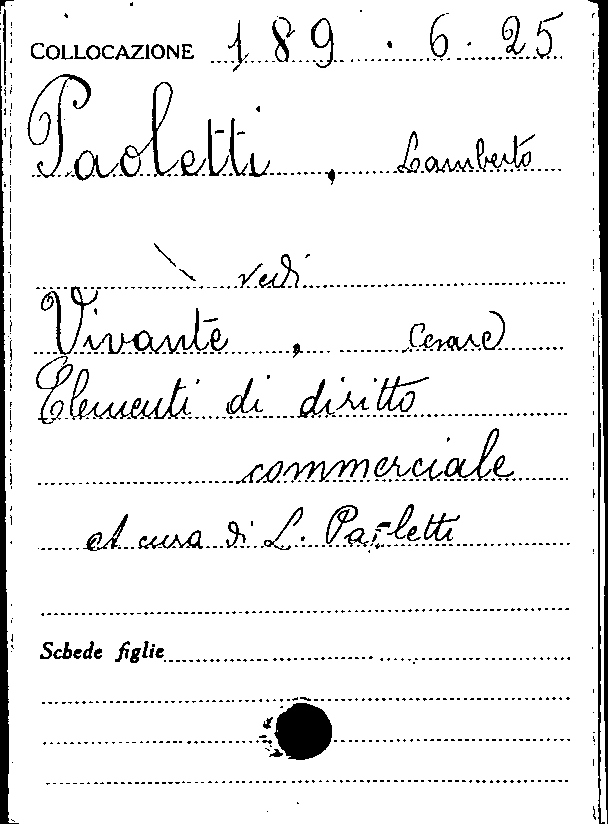 COLLOCAZIONE 189.6.25
Paoletti, Lamberto
vedi
Vivante, Cesare
Elementi di diritto
commerciale
A cura di L. Paoletti
Schede figlie